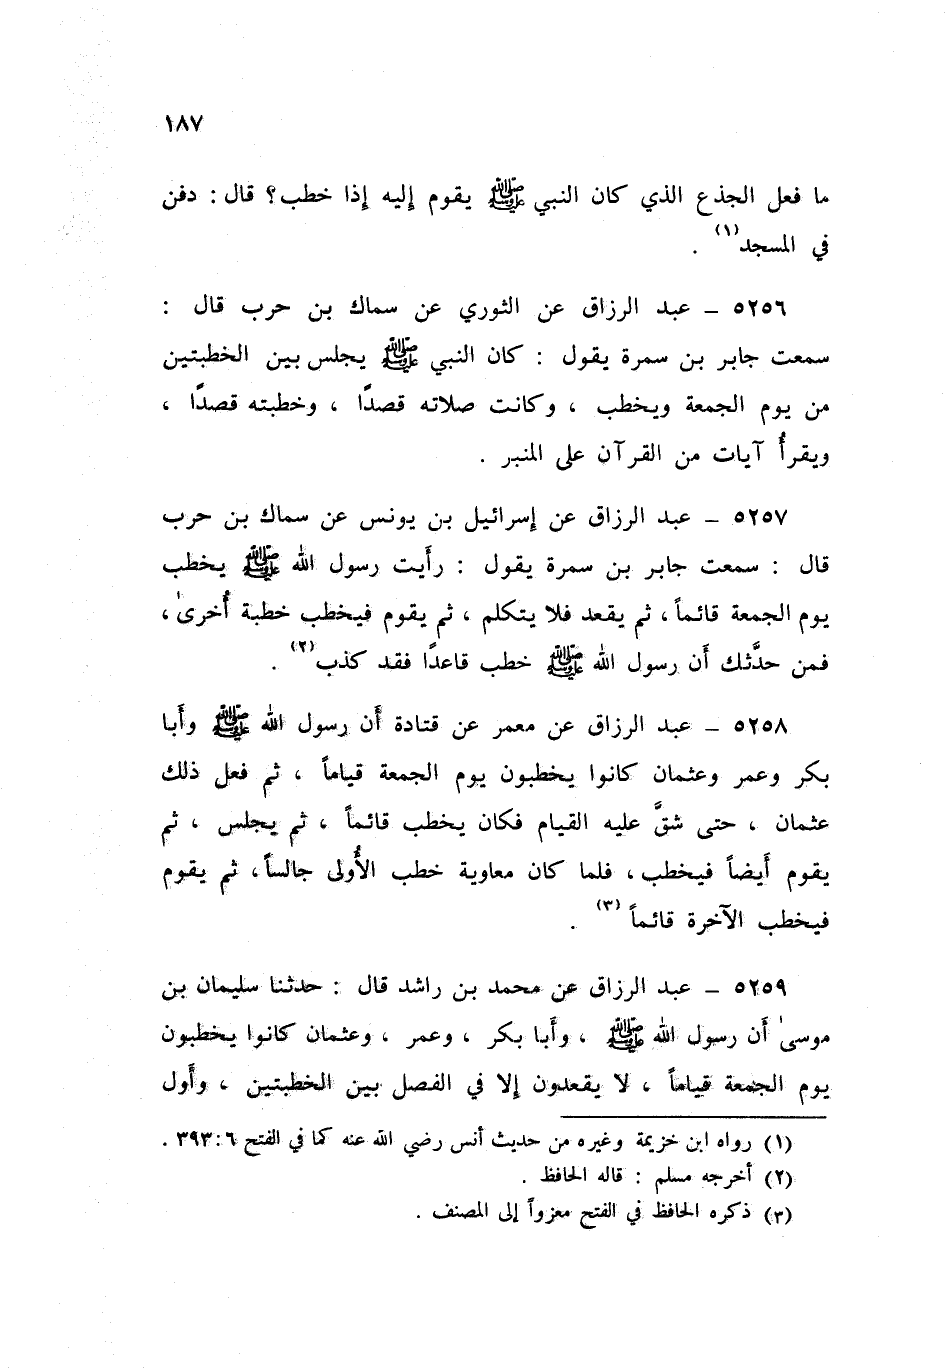 ١٨٧
ما فعل الجذع الذي كان النبي ﷺ يقوم إليه إذا خطب؟ قال : دفن
في المسجد(١) .
٥٢٥٦ ـ عبد الرزاق عن الثوري عن سماك بن حرب قال :
سمعت جابر بن سمرة يقول : كان النبي ﷺ يجلس بين الخطبتين
من يوم الجمعة ويخطب ، وكانت صلاته قصدًا ، وخطبته قصدًا ،
ويقرأُ آيات من القرآن على المنبر .
٥٢٥٧ ـ عبد الرزاق عن إسرائيل بن يونس عن سماك بن حرب
قال : سمعت جابر بن سمرة يقول : رأَيت رسول الله ﷺ يخطب
يوم الجمعة قائماً ، ثم يقعد فلا يتكلم ، ثم يقوم فيخطب خطبة أُخرىٰ ،
فمن حدَّثك أَن رسول الله ﷺ خطب قاعدًا فقد كذب(٢) .
٥٢٥٨ ـ عبد الرزاق عن معمر عن قتادة أَن رسول الله ﷺ وأَبا
بكر وعمر وعثمان كانوا يخطبون يوم الجمعة قياماً ، ثم فعل ذلك
عثمان ، حتى شقَّ عليه القيام فكان يخطب قائماً ، ثم يجلس ، ثم
يقوم أَيضاً فيخطب ، فلما كان معاوية خطب الأُولى جالساً ، ثم يقوم
فيخطب الآخرة قائماً (٣) .
٥٢٥٩ ـ عبد الرزاق عن محمد بن راشد قال : حدثنا سليمان بن
موسىٰ أَن رسول الله ﷺ ، وأَبا بكر ، وعمر ، وعثمان كانوا يخطبون
يوم الجمعة قياماً ، لا يقعدون إلا في الفصل بين الخطبتين ، وأَول
(١) رواه ابن خزيمة وغيره من حديث أنس رضي الله عنه كما في الفتح ٦ : ٣٩٣ .
(٢) أخرجه مسلم : قاله الحافظ .
(٣) ذكره الحافظ في الفتح معزواً إلى المصنف .